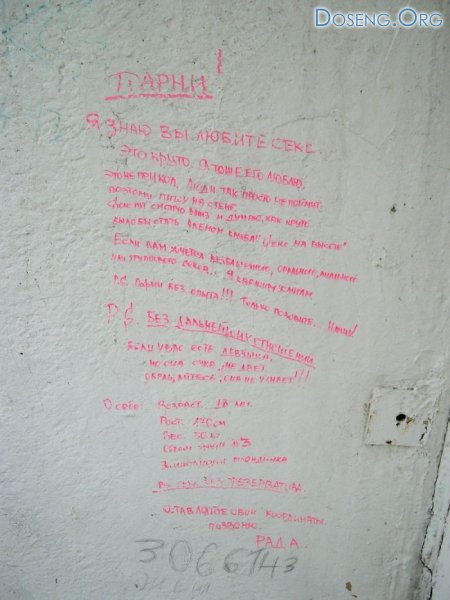 Doseng.Org
ПАРНИ!
Я ЗНАЮ ВЫ ЛЮБИТЕ СЕКС.
ЭТО КРУТО. Я ТОЖЕ ЕГО ЛЮБЛЮ.
ЭТО НЕ ПРИКОЛ, ЛЮДИ ТАК ПРОСТО НЕ ПОЙМУТ
ПОЭТОМУ ПИШУ НА СТЕНЕ.
СМОТРЮ ВНИЗ И ДУМАЮ, КАК КРУТО
БЫЛО БЫ СТАТЬ ЧЛЕНОМ КЛУБА "СЕКС НА ВЫСОТЕ"
ЕСЛИ ВАМ ХОЧЕТСЯ ОРАЛЬНОГО, АНАЛЬНОГО
ИЛИ ГРУППОВОГО СЕКСА... Я К ВАШИМ УСЛУГАМ
P.S. ПАРНИ БЕЗ ОПЫТА!!! ТОЛЬКО ПОЗОВИТЕ.
P.S. БЕЗ ДАЛЬНЕЙШИХ ОТНОШЕНИЙ
ЕСЛИ У ВАС ЕСТЬ ДЕВУШКА,
НО ОНА СУКА, НЕ ДАЕТ
ОБРАЩАЙТЕСЬ, ОНА НЕ УЗНАЕТ!!!
О СЕБЕ: ВОЗРАСТ: 18 ЛЕТ.
РОСТ: 170 СМ
ВЕС: 50 КГ
№3
БЛОНДИНКА
БЕЗ ПРЕЗЕРВАТИВА.
ОСТАВЛЯЙТЕ СВОИ КООРДИНАТЫ
ПОЗВОНЮ.
РАДА
3066143